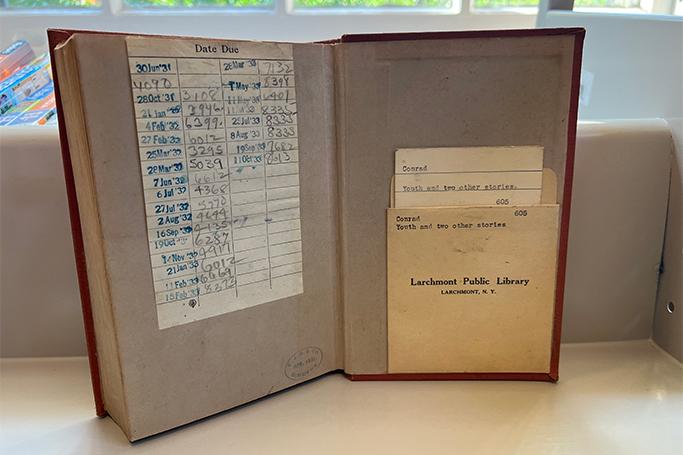 Date Due
30 Jun '31
4090
28 Oct '31 3108
21 Jan '32 3946
4 Feb '32 6399
27 Feb '32 6012
25 Mar '32 3295
28 Mar '32 5039
7 Jun '32 6612
6 Jul '32 4368
27 Jul '32
2 Aug '32 4644
16 Sep '32
19 Oct '32 6287
14 Nov '32 4917
21 Jan '33 6012
11 Feb '33
15 Feb '33 8373
28 Mar '33 7132
May '33 8398
11 May '33
8335
25 Jul '33 8335
8 Aug '33 8333
19 Sep '33 7682
11 Oct '33 8613
Conrad
Youth and two other stories.
605
Conrad 605
Youth and two other stories
Larchmont Public Library
LARCHMONT, N. Y.